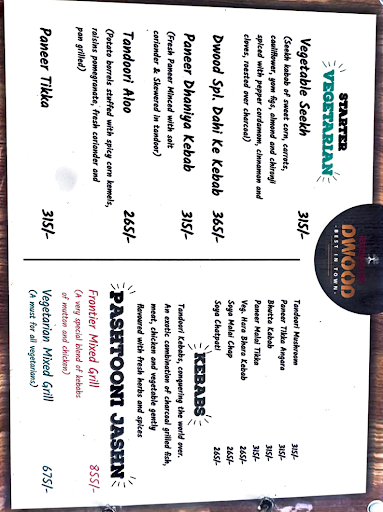 DWOOD
BEST IN TOWN
STARTER
VEGETARIAN
Vegetable Seekh 315/-
(Seekh kabab of sweet corn, carrots,
cauliflower, yam figs, almond and chironji
spiced with pepper cardamom, cinnamon and
cloves, roasted over charcoal)
Dwood Spl. Dahi Ke Kebab 365/-
Paneer Dhaniya Kebab 315/-
(Fresh Paneer Minced with salt
coriander & Skewered in tandoor)
Tandoori Aloo 265/-
(Potato barrels stuffed with spicy corn kernels,
raisins pomegranate, fresh coriander and
pan grilled)
Paneer Tikka 315/-
Tandoori Mushroom 315/-
Paneer Tikka Angara 315/-
Bhutta Kabab 315/-
Paneer Malai Tikka 315/-
Veg. Hara Bhara Kebab 265/-
Soya Malai Chap 265/-
Soya Chatpati 265/-
KEBABS
Tandoori Kebabs, conquering the world over.
An exotic combination of charcoal grilled fish,
meat, chicken and vegetable gently
flavoured with fresh herbs and spices
PASHTOONI JASHN
Frontier Mixed Grill 855/-
(A very special blend of kebabs
of mutton and chicken)
Vegetarian Mixed Grill 675/-
(A must for all vegetarians)